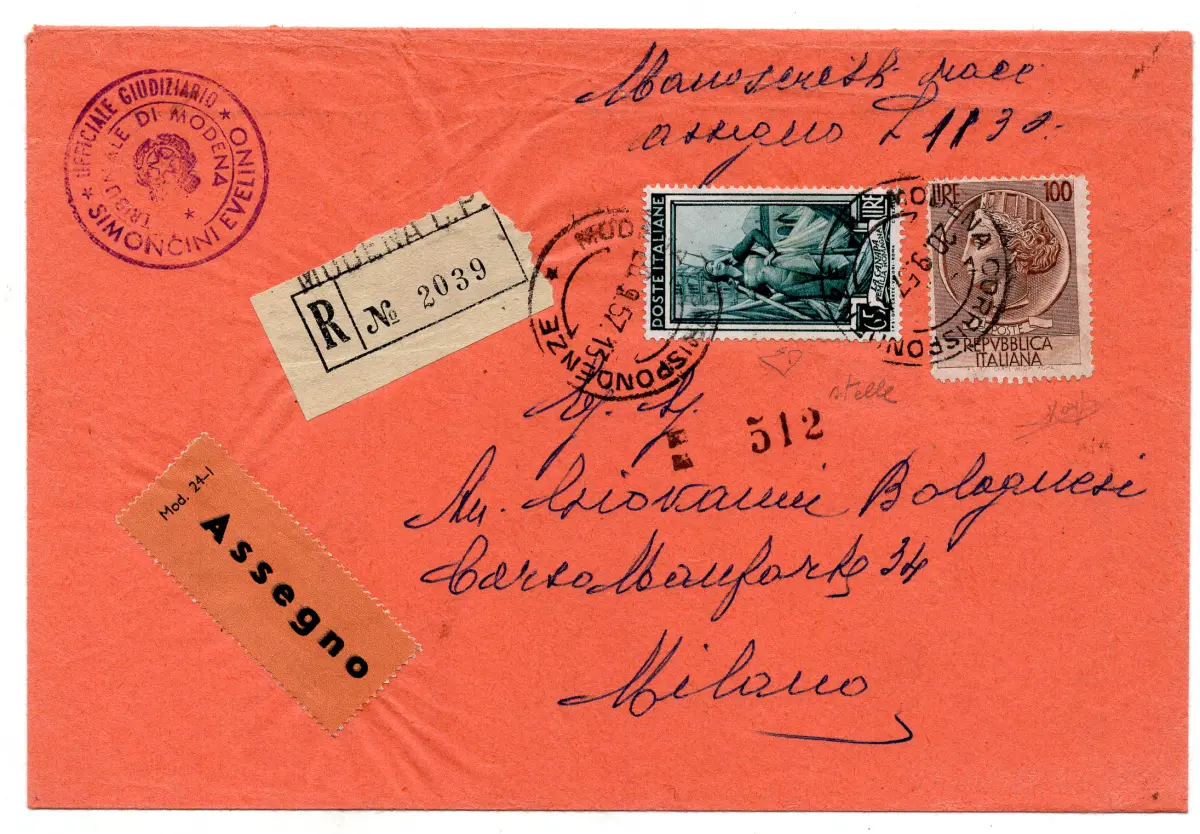 Manoscritti raccc
assegno £ 1130.
★ UFFICIALE GIUDIZIARIO ★
SIMONCINI EVELINO
TRIBUNALE DI MODENA
MODENA C.P.
R No 2039
POSTE ITALIANE
LIRE
65
LIRE 100
POSTE
REPVBBLICA
ITALIANA
MODENA CORRISPONDENZE
20.9.57
stelle
512
Av. Giovanni Bolognesi
Corso Monforte 34
Milano
Mod. 24-I
Assegno